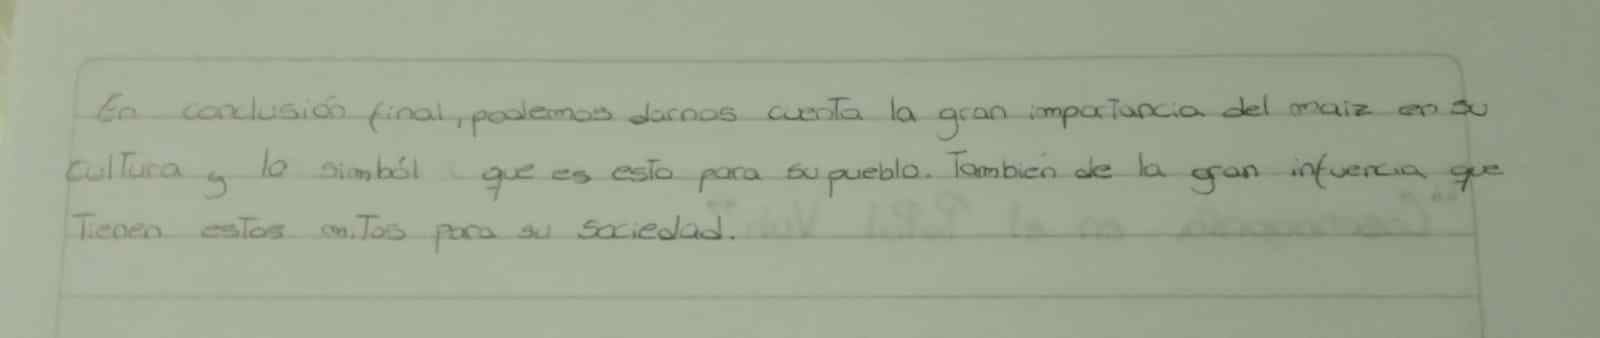 En conclusión final, podemos darnos cuenta la gran importancia del maiz en su
cultura y lo simból que es esto para su pueblo. También de la gran infuencia que
Tienen estos mitos para su sociedad.